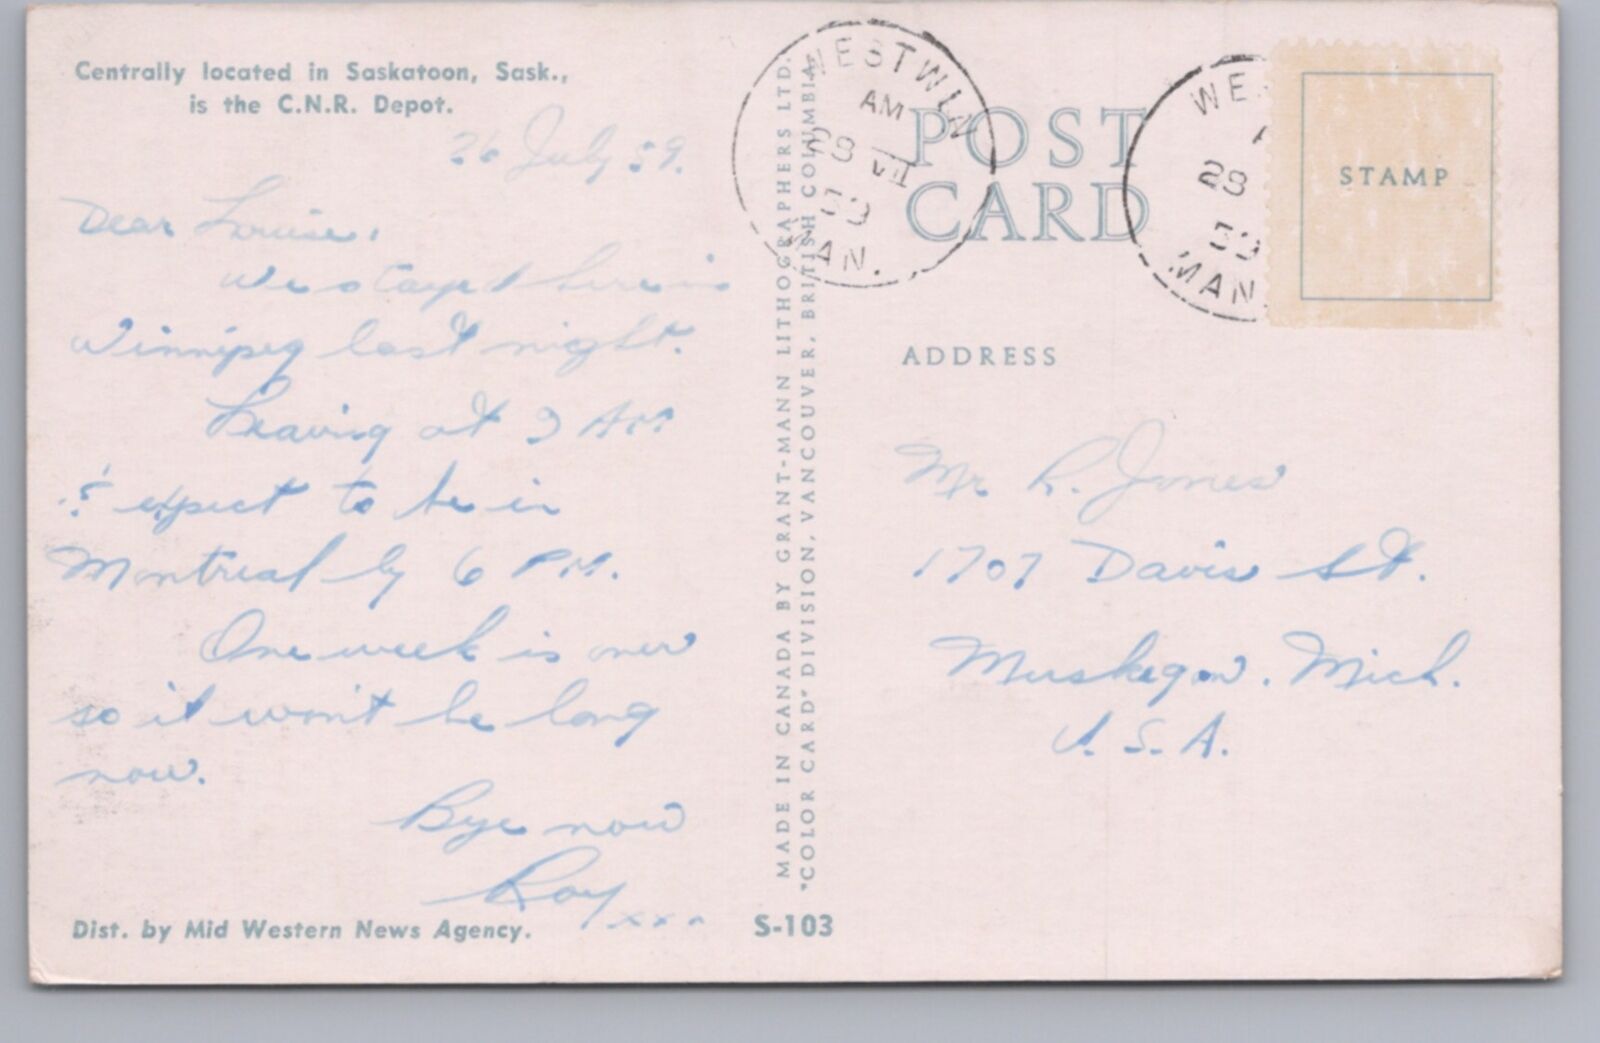 Centrally located in Saskatoon, Sask.,
is the C.N.R. Depot.
26 July 59.
Dear Louise,
We stayed here in
Winnipeg last night.
Leaving at 9 AM
& expect to be in
Montreal by 6 P.M.
One week is over
so it won't be long
now.
Bye now
Roy xxx
Dist. by Mid Western News Agency.
S-103
MADE IN CANADA BY GRANT-MANN LITHOGRAPHERS LTD.
"COLOR CARD" DIVISION, VANCOUVER, BRITISH COLUMBIA
WESTWIN
AM
28 VII
MAN.
POST
CARD
WE
28
MAN
STAMP
ADDRESS
Mr R. Jones
1707 Davis St.
Muskegon, Mich.
U.S.A.